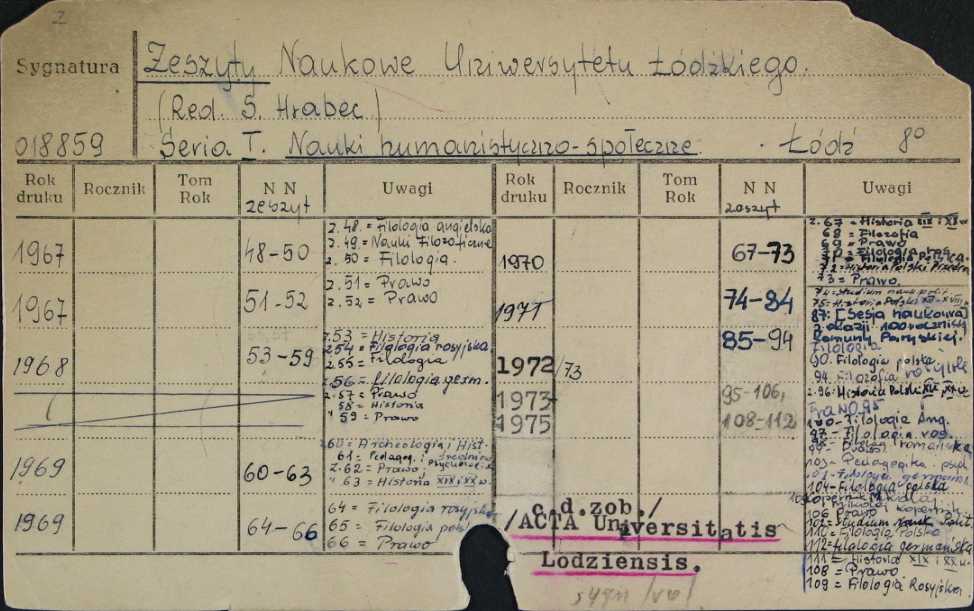 2
Sygnatura
Zeszyty Naukowe Uniwersytetu Łódzkiego.
(Red. S. Hrabec)
018859
Seria I. Nauki humanistyczno-społeczne. Łódź 8°
Rok druku Rocznik Tom Rok N N zeszyt Uwagi
Rok druku Rocznik Tom Rok N N zeszyt Uwagi
1967 48-50
z. 48. = Filologia angielska
z. 49. = Nauki Filozoficzne
z. 50 = Filologia.
1967 51-52
z. 51 = Prawo
z. 52 = Prawo
1968 53-59
z. 53 = Historia
z. 54 = Filologia rosyjska
z. 55 = Filologia
z. 56 = Filologia germ.
z. 57 = Prawo
58 = Historia
" 59 = Prawo
1969 60-63
z. 60 = Archeologia i Hist.
61 = Pedagog. i
z. 62 = Prawo
" 63 = Historia XIX i XX w.
1969 64-66
64 = Filologia rosyjska
65 = Filologia pols
66 = Prawo
1970 67-73
z. 67 = Historia XIX i XX w
68 = Filozofia
69 = Prawo
72 = Historia Polski
73 = Prawo.
1971 74-84
74 = Studium nauk polit.
75 = Historia Polski
1972/73 85-94
87: [Sesja naukowa]
z okazji 100 rocznicy
Komuny Paryskiej.
Filologia
90. Filologia polska
94. Filozofia
1973 95-106,
z. 96: Historia Polski XIX, XX w
Prawo 95
1975 108-112
100 - Filologia Ang.
97 - Filologia ros.
99 - Prawo
103 - Pedagogika. psych
104 - Filologia polska
106 Prawo
110 = Filologia Polska
112 = filologia germańska
111 = Historia XIX i XX w.
108 = Prawo
109 = Filologia Rosyjska.
c.d.zob./
/ACTA Universitatis
Lodziensis.